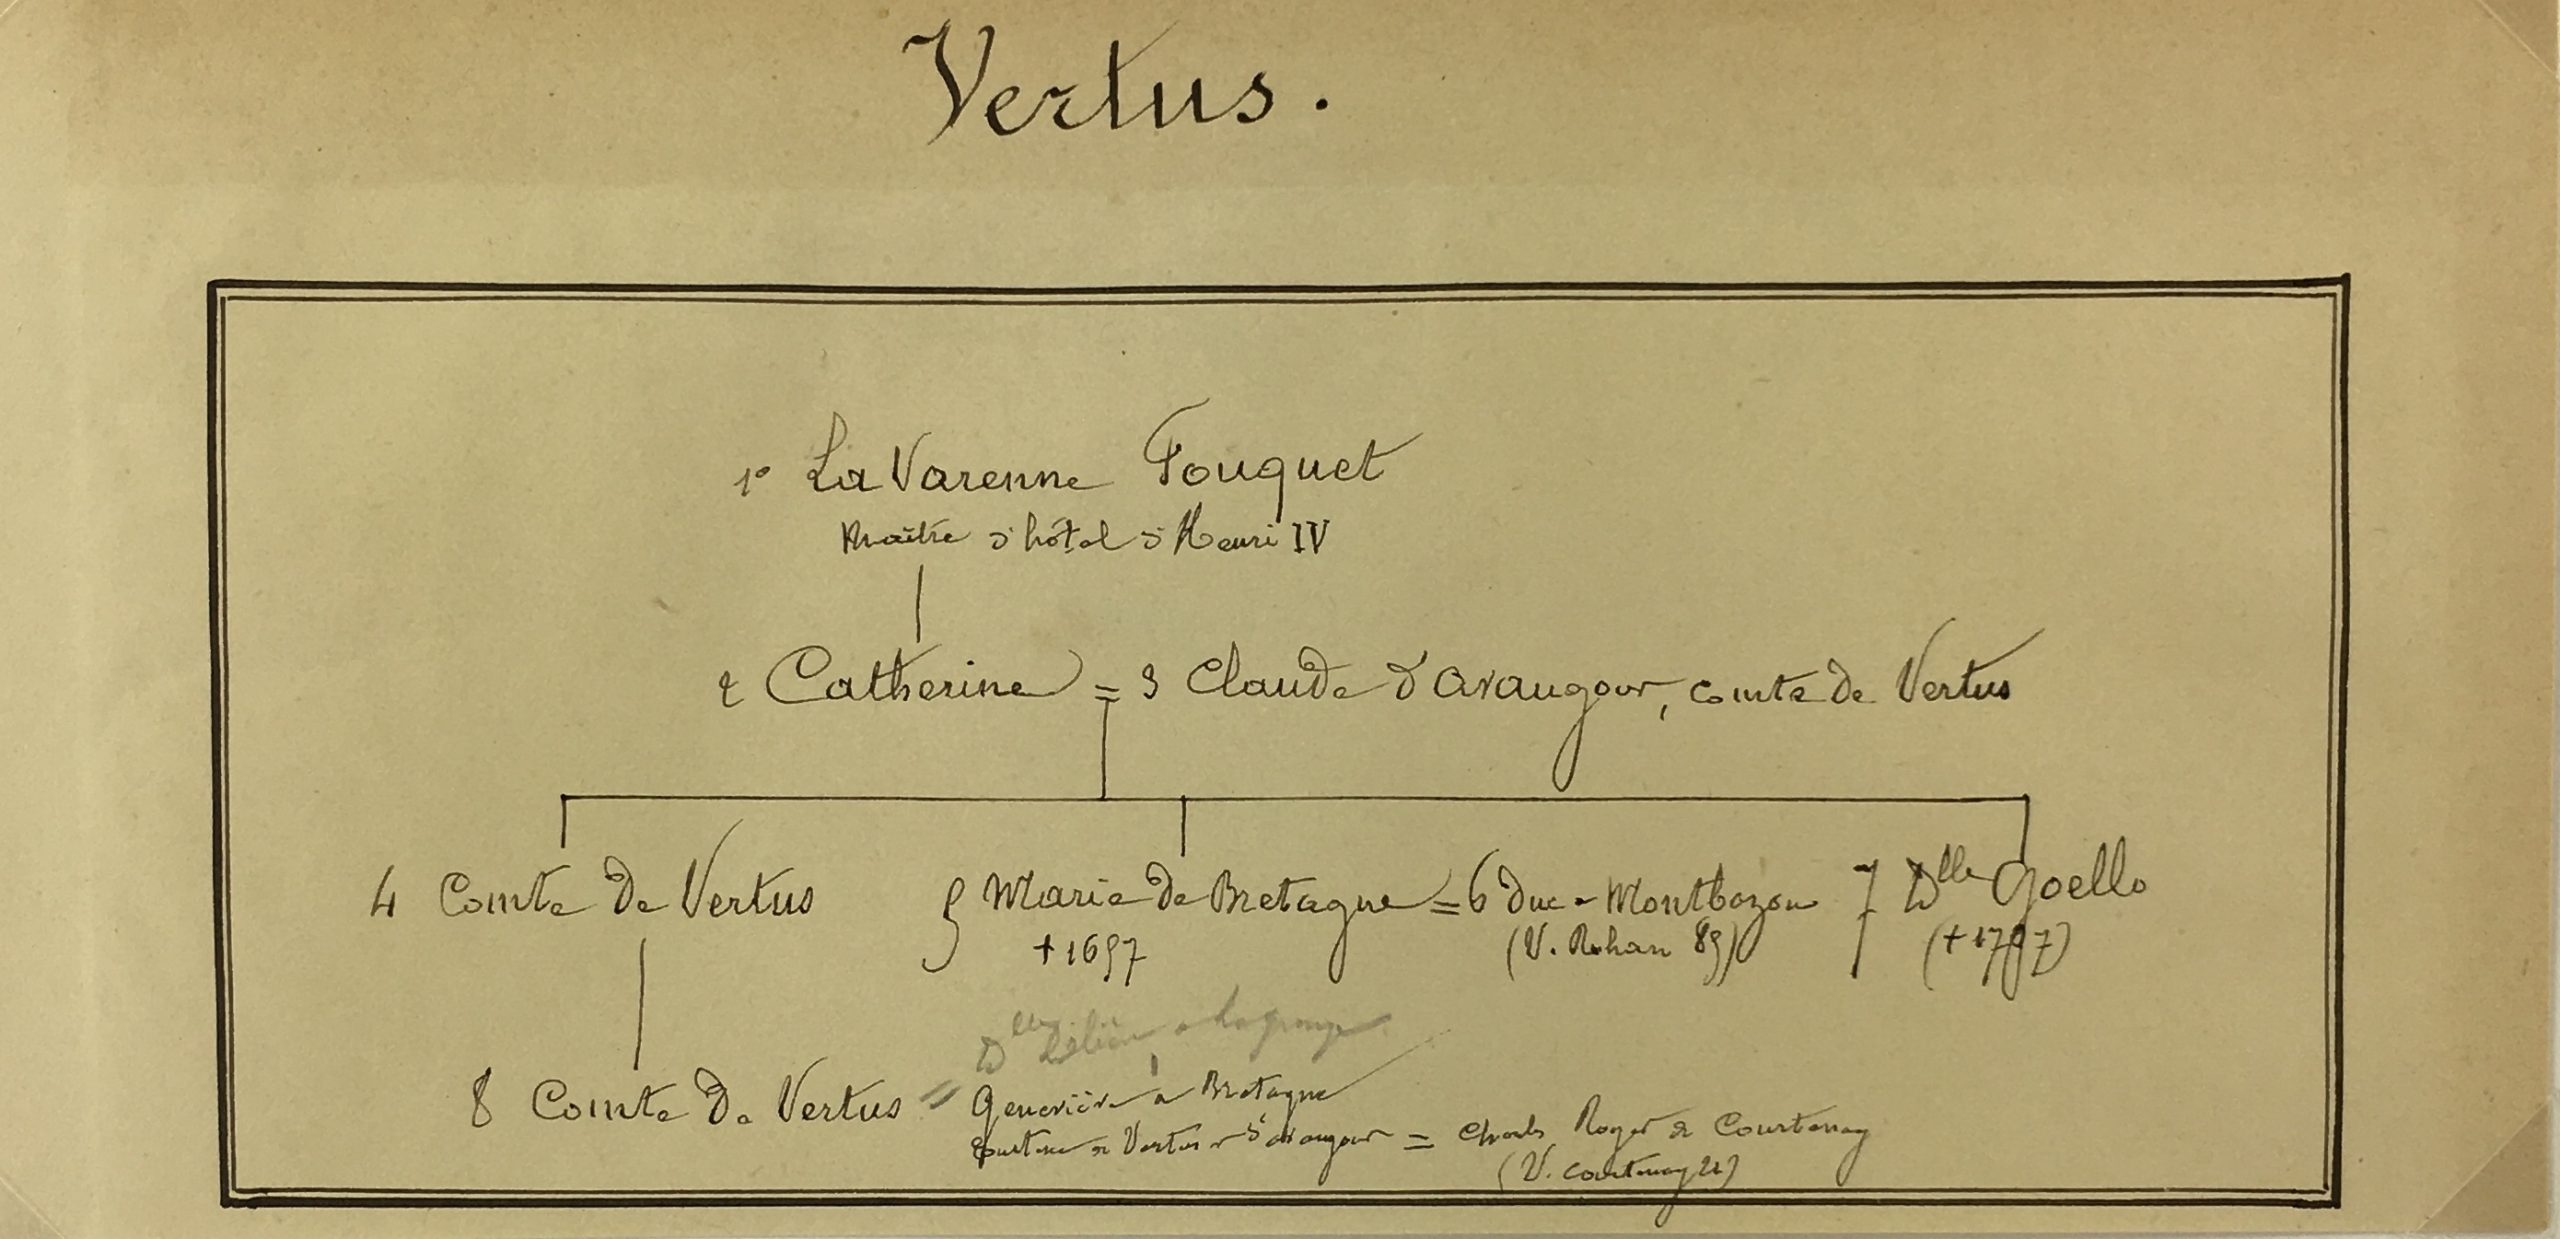 Vertus.
1° La Varenne Fouquet
Maître d'hôtel d'Henri IV
2 Catherine = 3 Claude d'Avaugour, comte de Vertus
4 Comte de Vertus 5 Marie de Bretagne = 6 duc de Montbazon 7 Dlle Goello
+ 1657 (V. Rohan 89)
Dlle de Lagrange
8 Comte de Vertus = Geneviève de Bretagne
de Vertus d'Avaugour = Charles Roger de Courtenay
(V. Courtenay 22)